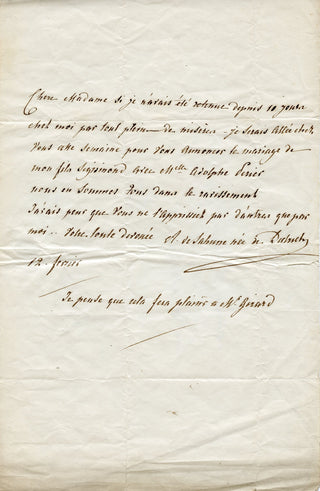 Chere Madame si je n'avais été retenue depuis 10 jours
chez moi par tout plein de misères je serais allée chez
vous cette semaine pour vous annoncer le mariage de
mon fils Sigismond avec Melle Adolphe Perier
nous en sommes tous dans le ravissement
J'avais peur que vous ne l'apprissiez par d'autres que par
moi .. votre toute devouée
12 fevrier
Je pense que cela fera plaisir a Mr Girard